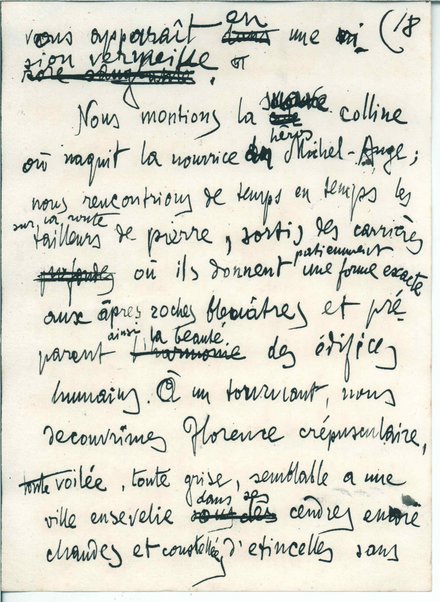 vous apparaît en une vi- (18
sion vermeille et
Nous montions la colline
héros
où naquit la nourrice Michel-Ange;
nous rencontrions de temps en temps les
sur la route
tailleurs de pierre, sortis des carrières
patiemment
où ils donnent une forme exacte
aux âpres roches bleuâtres et pré-
ainsi la beauté
parent l'harmonie des édifices
humains. À un tournant, nous
decouvrîmes Florence crépusculaire,
toute voilée, toute grise, semblable a une
dans ses
ville ensevelie sous des cendres encore
chaudes et constellée d'etincelles sans